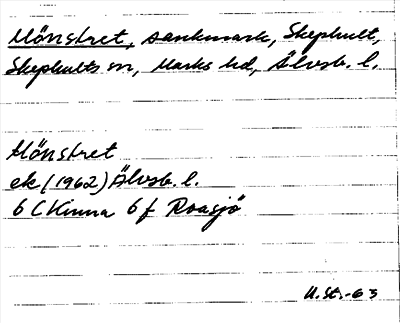 Mönstret, sankmark, Skephult,
Skephults sn, Marks hd, Älvsb. l.
Mönstret
ek (1962) Älvsb. l.
6 C Kinna 6 f Roasjö
U. St. -63